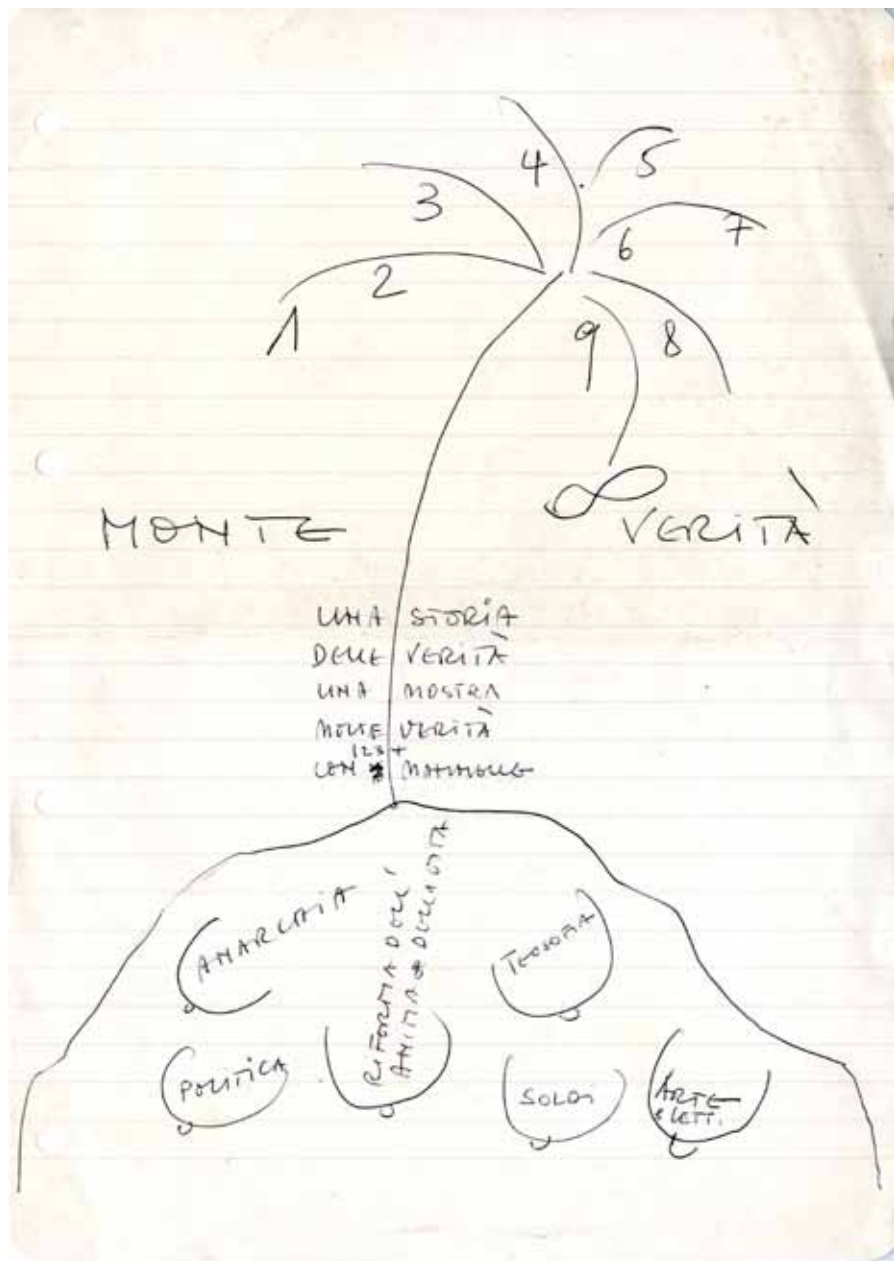 4 5
3
6 7
2
1 9 8
MONTE VERITÀ
UNA STORIA
DELLE VERITÀ
UNA MOSTRA
MOLTE VERITÀ
123+
CON MAMMELLE
ANARCHIA
RIFORMA DELL'
ANIMA & DELLA VITA
TEOSOFIA
POLITICA
SOLDI
ARTE
& LETT.